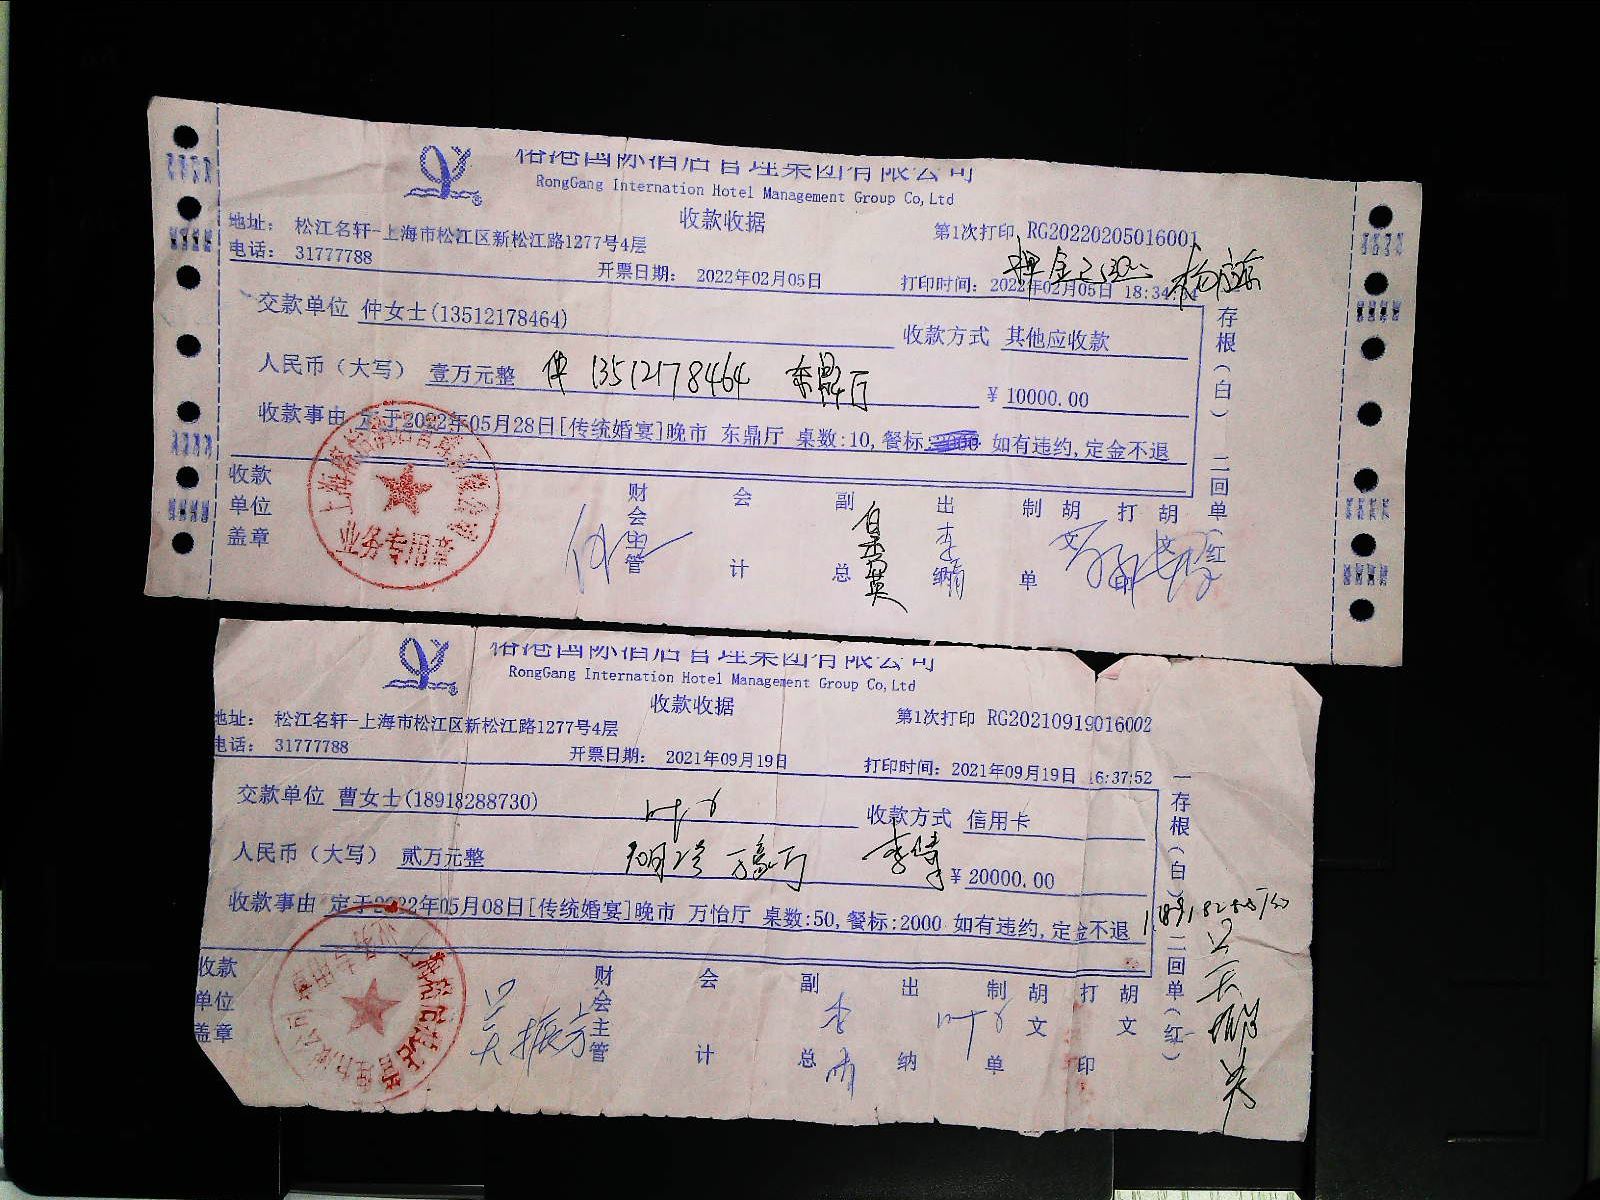 榕港国际酒店管理集团有限公司
RongGang Internation Hotel Management Group Co,Ltd
收款收据
地址： 松江名轩-上海市松江区新松江路1277号4层
第1次打印 RG20220205016001
电话： 31777788
开票日期： 2022年02月05日
打印时间：2022年02月05日 18:34
押金
交款单位 仲女士(13512178464)
收款方式 其他应收款
人民币（大写） 壹万元整
仲 13512178464 东鼎厅
¥ 10000.00
收款事由 定于2022年05月28日[传统婚宴]晚市 东鼎厅 桌数:10,餐标: 如有违约,定金不退
存根（白） 二回单（红）
收款单位盖章
业务专用章
财会主管
会计
副总
出纳
制单
胡文
打印
胡文
榕港国际酒店管理集团有限公司
RongGang Internation Hotel Management Group Co,Ltd
收款收据
地址： 松江名轩-上海市松江区新松江路1277号4层
第1次打印 RG20210919016002
电话： 31777788
开票日期： 2021年09月19日
打印时间：2021年09月19日 16:37:52
交款单位 曹女士(18918288730)
叶
收款方式 信用卡
人民币（大写） 贰万元整
李倩
¥ 20000.00
收款事由 定于2022年05月08日[传统婚宴]晚市 万怡厅 桌数:50,餐标:2000 如有违约,定金不退
一存根（白） 二回单（红）
收款单位盖章
吴振芳
财会主管
会计
副总
出纳
制单
胡文
打印
胡文